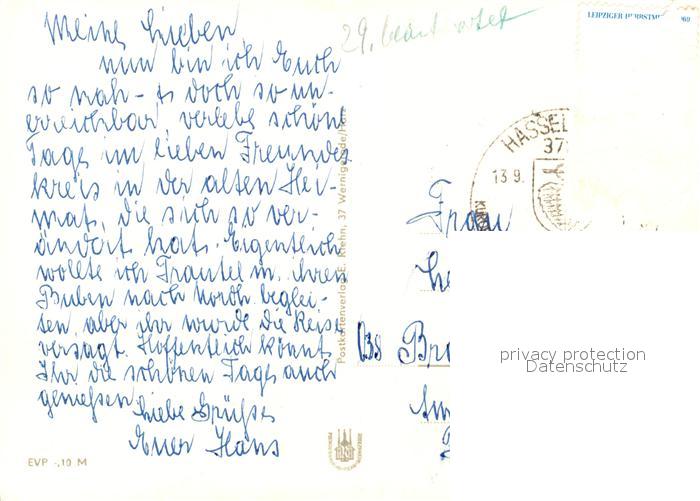 Meine Lieben,
nun bin ich Euch
so nah - & doch so un-
erreichbar, verlebe schöne
Tage im lieben Freundes
kreis in der alten Hei-
mat, die sich so ver-
ändert hat. Eigentlich
wollte ich Trautel m. ihren
Buben nach Nordh. beglei-
ten, aber ihr wurde die Reise
versagt. Hoffentlich könnt
Ihr die schönen Tage auch
genießen
Liebe Grüße
Euer Hans
EVP -,10 M
Postkartenverlag E. Riehn, 37 Wernigerode/Harz
29.
LEIPZIGER
HASSEL
37
13.9.
Frau
privacy protection
Datenschutz